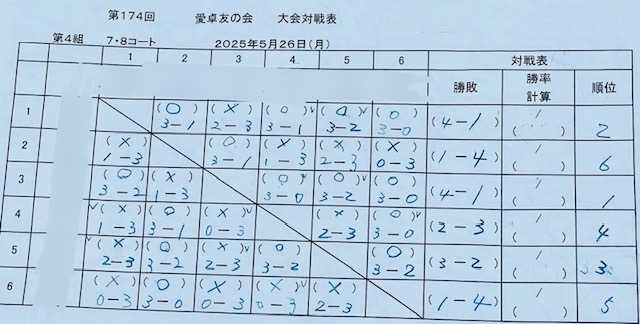 第174回 愛卓友の会 大会対戦表
第4組 7・8コート 2025年5月26日(月)
1 2 3 4 5 6 対戦表
勝敗 勝率計算 順位
1 (○) 3-1 (×) 2-3 (○) 3-1 (○) 3-2 (○) 3-0 (4-1) ( / ) 2
2 (×) 1-3 (○) 3-1 (×) 1-3 (×) 2-3 (×) 0-3 (1-4) ( / ) 6
3 (○) 3-2 (×) 1-3 (○) 3-0 (○) 3-2 (○) 3-0 (4-1) ( / ) 1
4 (×) 1-3 (○) 3-1 (×) 0-3 (×) 2-3 (○) 3-0 (2-3) ( / ) 4
5 (×) 2-3 (○) 3-2 (×) 2-3 (○) 3-2 (○) 3-2 (3-2) ( / ) 3
6 (×) 0-3 (○) 3-0 (×) 0-3 (×) 0-3 (×) 2-3 (1-4) ( / ) 5